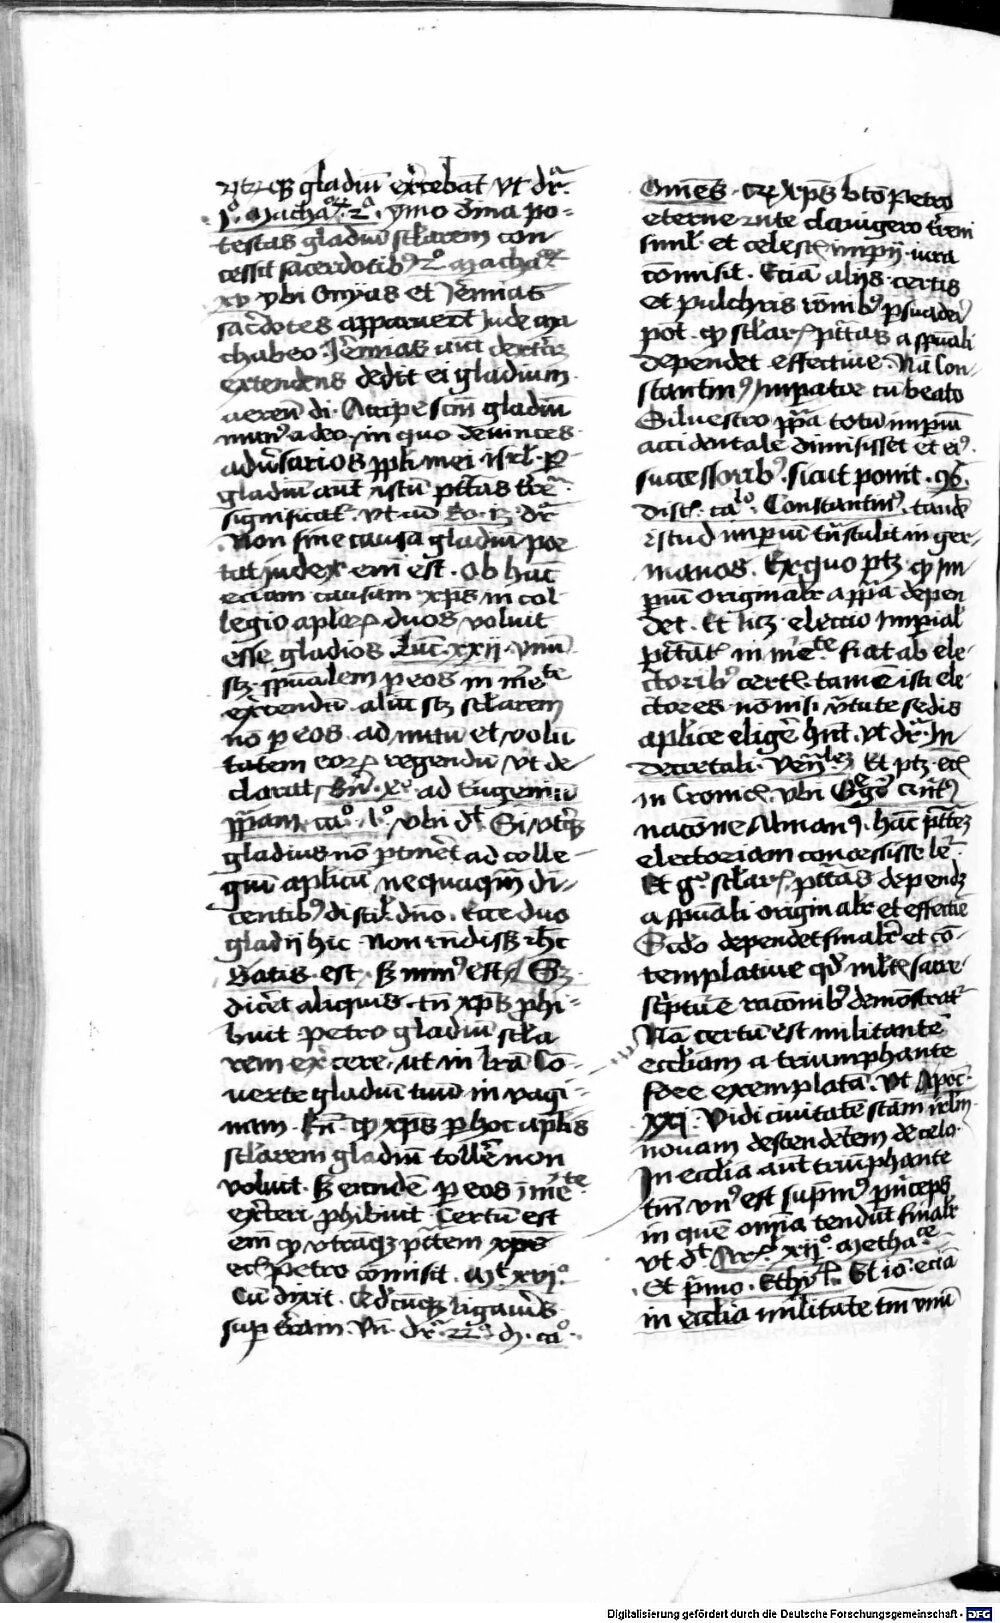 gladiū exercebāt vt dr̄
j° Macha°ꝝ 2ª ymo diuina po-
testas gladiū sclarem con
cessit sacerdotibꝰ 2° Machaꝝ
xv vbi Onyas et Jeremias
sacerdotes apparuerūt Jude ma
chabeo Jeremias aūt dextrā
extendens dedit ei gladium
aureū di. Accipe scm̄ gladiū
munꝰ a deo in quo devinces
aduersarios ppli mei isrl. Per
gladiū aūt istū ptās
significat. vt ad Ro. 13 dr̄
Non sine causa gladiū por
tat judex enī est. Ob hāc
eciam causam xp̄s in col
legio aploꝝ duos voluit
esse gladios Luc. xxij. vnū
sꝫ spūalem p eos in mēte
exercendū. aliū sꝫ sclarem
nō p eos ad nutū et volū
tatem eoꝝ regendū vt de
clarat Bn̄. ad Eugeniū
papam ca° . vbi d't Si vterqꝫ
gladius nō ptinet ad colle-
giū aplicū nequaqm̄ di-
centibꝰ discil'. dn̄o. Ecce duo
gladij hic. Non rn̄disset hc
Satis est, sꝫ nimꝰ est. Sꝫ
diceret aliquis. tn̄ xp̄s phi-
buit Petro gladiū scla
rem exercere. ut in Con-
uerte gladiū tuū in vagi-
nam. Rn̄. qꝫ xp̄s p hoc aplis
sclarem gladiū tollere non
voluit. sꝫ eundē p eos ī mēte
exerceri phibuit. Certū est
em̄ qꝫ vtrāqꝫ ptātem xp̄s
Petro cōmisit. Mt xvj°
Cū dixit. Qd'cūqꝫ ligaueris
sup terram. Vn̄. dr̄ 22° di. ca°
Omēs. xp̄s bto Petro
eterne vite clauigero terreni
simul et celestis imperij iura
cōmisit. Eciā alijs certis
et pulchris rōnibꝰ persuaderi
pot. qꝫ sclaris ptās a spūali
dependet effectiue. Nā Con-
stantinꝰ Imperator cū beato
Siluestro ppā totū imperiū
accidentale dimisisset et eiꝰ
successoribꝰ. sicut ponit. 96.
Dist. ca°. Constantinꝰ. tandē
istud imperiū trāstulit in ger-
manos. Ex quo ptꝫ qꝫ Im
periū originalr a papa depen
det. Et licꝫ eleccio Imperial'
in mēte fiat ab ele-
ctoribꝰ certis. tamē isti ele-
ctores nō nisi v'tute sedis
aplice eligere hn̄t. vt dr̄ In
Decretali. Venerabilē. Et ptꝫ
in Cronic. vbi Gregoꝰ
nacōne Almanꝰ. hāc ptātem
electoriam concessisse
Et g° sclaris ptās dependꝫ
a spūali originalr et effectie
Scdo dependet finalr et cō-
templatiue qd' mltis sacre
scripture raconibꝰ demōstrat
Nā certū est militantē
eccliam a triumphante
fore exemplatā. vt Apoc.
xxj. Vidi ciuitatē sctam irlm
nouam descendentem de celo.
In ecclia aūt triūphante
tm̄ vnꝰ est supmꝰ princeps
in quē omīa tendūt finalr
vt d't xij° Metha.ce
Et pmo Ethicoꝝ. Et io eciā
in ecclia militāte tm̄ vnū